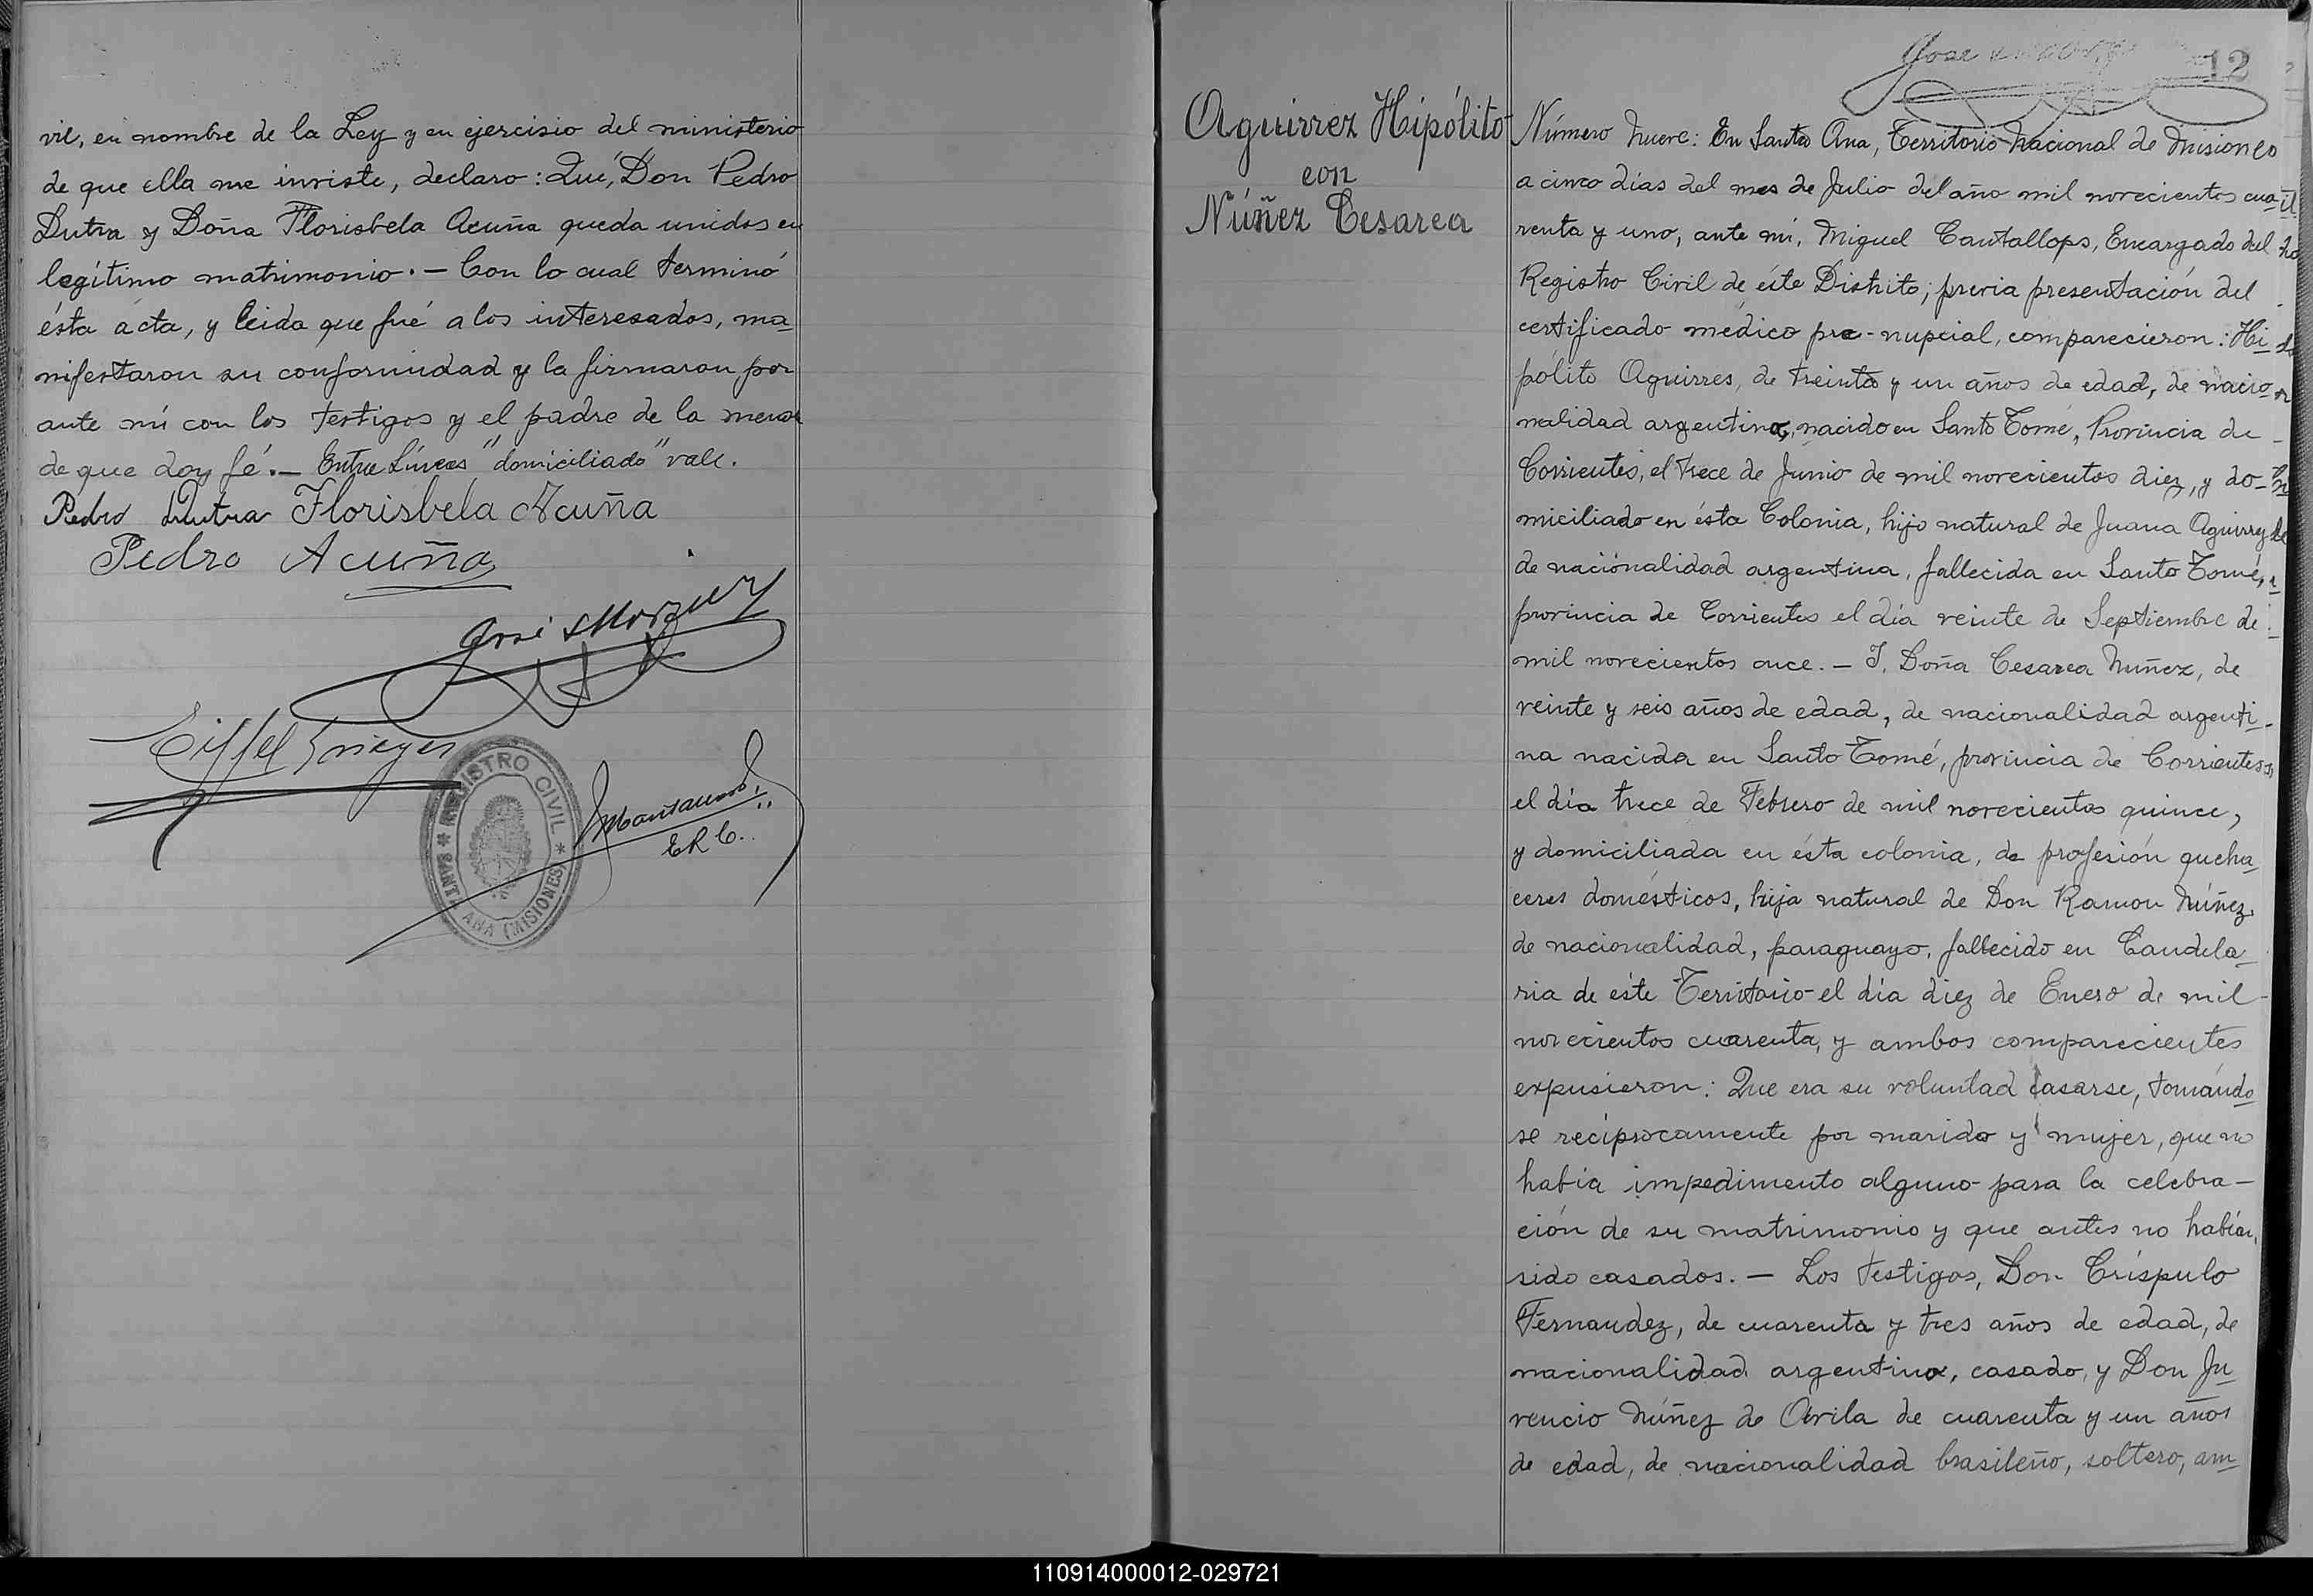 vil, en nombre de la Ley y en ejercisio del ministerio
de que ella me inviste, declaro: Que, Don Pedro
Dutra y Doña Florisbela Acuña queda unidos en
legítimo matrimonio.- Con lo cual terminó
ésta acta, y leida que fué a los interesados, ma
nifestaron su conformidad y la firmaron por
ante mí con los testigos y el padre de la menor
de que doy fé.- Entre Líneas "domiciliado" vale.
Pedro Dutra Florisbela Acuña
Pedro Acuña
José
REGISTRO CIVIL
SANTA ANA (MISIONES)
E R C.
12
Aguirrez Hipólito
con
Núñez Cesarea
Número nueve: En Santa Ana, Territorio Nacional de Misiones
a cinco días del mes de Julio del año mil novecientos cua
renta y uno, ante mí, Miguel Cantallops, Encargado del
Registro Civil de éste Distrito; previa presentación del
certificado médico pre-nupcial, comparecieron: Hi
pólito Aguirres, de treinta y un años de edad, de nacio
nalidad argentino, nacido en Santo Tomé, Provincia de
Corrientes, el trece de Junio de mil novecientos diez, y do-
miciliado en ésta Colonia, hijo natural de Juana Aguirrez
de nacionalidad argentina, fallecida en Santo Tomé,
provincia de Corrientes el día veinte de Septiembre de
mil novecientos once.- I. Doña Cesarea Nuñez, de
veinte y seis años de edad, de nacionalidad argenti-
na nacida en Santo Tomé, provincia de Corrientes,
el día trece de Febrero de mil novecientos quince,
y domiciliada en ésta colonia, de profesión queha
ceres domésticos, hija natural de Don Ramon Núñez,
de nacionalidad, paraguayo, fallecido en Candela
ria de éste Territorio el día diez de Enero de mil
novecientos cuarenta, y ambos comparecientes
expusieron: Que era su voluntad casarse, tomándo
se recíprocamente por marido y mujer, que no
había impedimento alguno para la celebra-
ción de su matrimonio y que antes no habían
sido casados.- Los testigos, Don Críspulo
Fernandez, de cuarenta y tres años de edad, de
nacionalidad argentino, casado, y Don Ju
vencio Núñez de Avila de cuarenta y un años
de edad, de nacionalidad brasileño, soltero, am
110914000012-029721